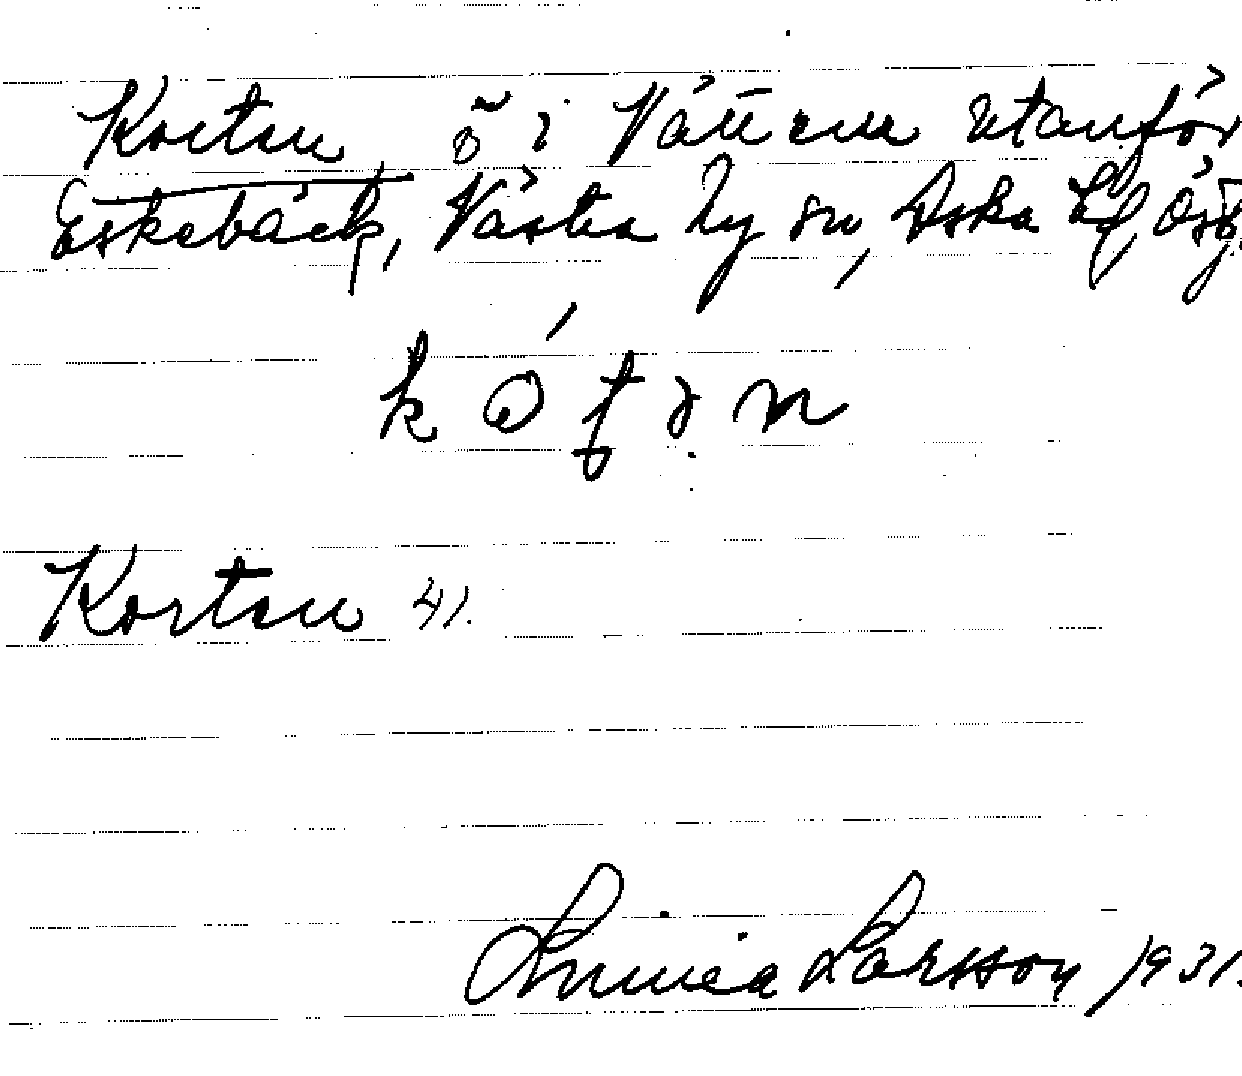 Korten ö i Vättern utanför
Eskebäck, Västra Ny sn, Aska hd, Ösg.
kó̩ʈən
Korten 41.
Linnea Larsson 1931.